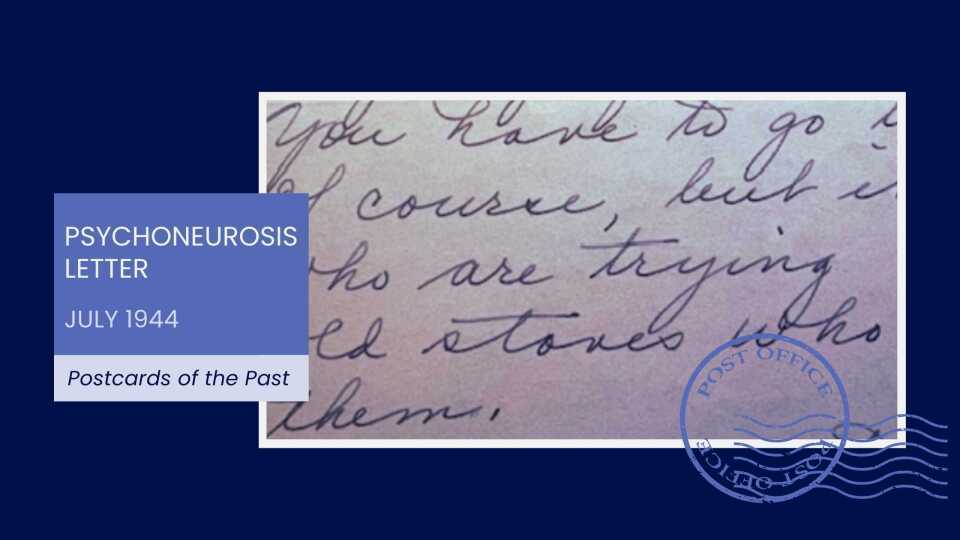 You have to go
Of course, but
who are trying
old stoves who
them.
PSYCHONEUROSIS
LETTER
JULY 1944
Postcards of the Past
POST OFFICE
POST OFFICE